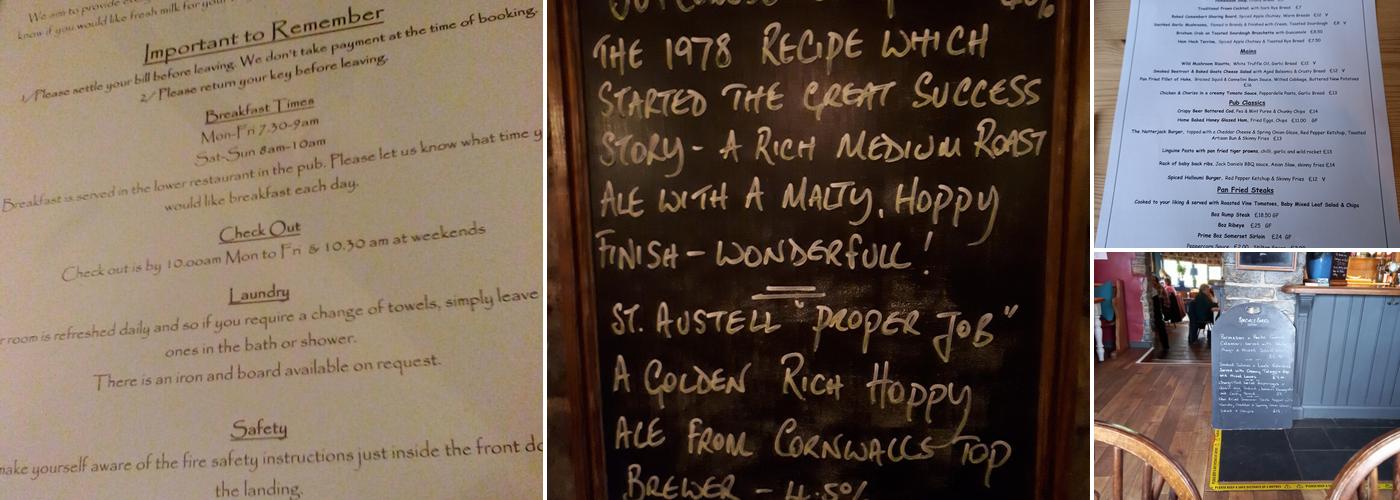 We aim to provide
know if you would like fresh milk for your
Important to Remember
1/ Please settle your bill before leaving. We don't take payment at the time of booking.
2/ Please return your key before leaving.
Breakfast Times
Mon-Fri 7.30-9am
Sat-Sun 8am-10am
Breakfast is served in the lower restaurant in the pub. Please let us know what time y
would like breakfast each day.
Check Out
Check out is by 10.00am Mon to Fri & 10.30 am at weekends
Laundry
room is refreshed daily and so if you require a change of towels, simply leave
ones in the bath or shower.
There is an iron and board available on request.
Safety
make yourself aware of the fire safety instructions just inside the front do
the landing.
THE 1978 RECIPE WHICH
STARTED THE GREAT SUCCESS
STORY - A RICH MEDIUM ROAST
ALE WITH A MALTY, HOPPY
FINISH - WONDERFULL!
ST. AUSTELL "PROPER JOB"
A GOLDEN RICH HOPPY
ALE FROM CORNWALLS TOP
BREWER - 4.5%
Traditional Prawn Cocktail, with Dark Rye Bread £7
Baked Camembert Sharing Board, Spiced Apple Chutney, Warm Breads £12 V
Garlicked Mushrooms, Flamed in Brandy & Finished with Cream, Toasted Sourdough £8 V
Brixham Crab on Toasted Sourdough Bruschetta with Guacamole £8.50
Ham Hock Terrine, Spiced Apple Chutney & Toasted Rye Bread £7.50
Mains
Wild Mushroom Risotto, White Truffle Oil, Garlic Bread £12 V
Smoked Beetroot & Baked Goats Cheese Salad with Aged Balsamic & Crusty Bread £12 V
Pan Fried Fillet of Hake, Braised Squid & Cannellini Bean Sauce, Wilted Cabbage, Buttered New Potatoes
£16
Chicken & Chorizo in a creamy Tomato Sauce, Pappardelle Pasta, Garlic Bread £13
Pub Classics
Crispy Beer Battered Cod, Pea & Mint Puree & Chunky Chips £14
Home Baked Honey Glazed Ham, Fried Eggs, Chips £11.00 GF
The Natterjack Burger, topped with a Cheddar Cheese & Spring Onion Glaze, Red Pepper Ketchup, Toasted
Artisan Bun & Skinny Fries £13
Linguine Pasta with pan fried tiger prawns, chilli, garlic and wild rocket £13
Rack of baby back ribs, Jack Daniels BBQ sauce, Asian Slaw, skinny fries £14
Spiced Halloumi Burger, Red Pepper Ketchup & Skinny Fries £12 V
Pan Fried Steaks
Cooked to your liking & served with Roasted Vine Tomatoes, Baby Mixed Leaf Salad & Chips
8oz Rump Steak £18.50 GF
8oz Ribeye £25 GF
Prime 8oz Somerset Sirloin £24 GF
Peppercorn Sauce £2.00